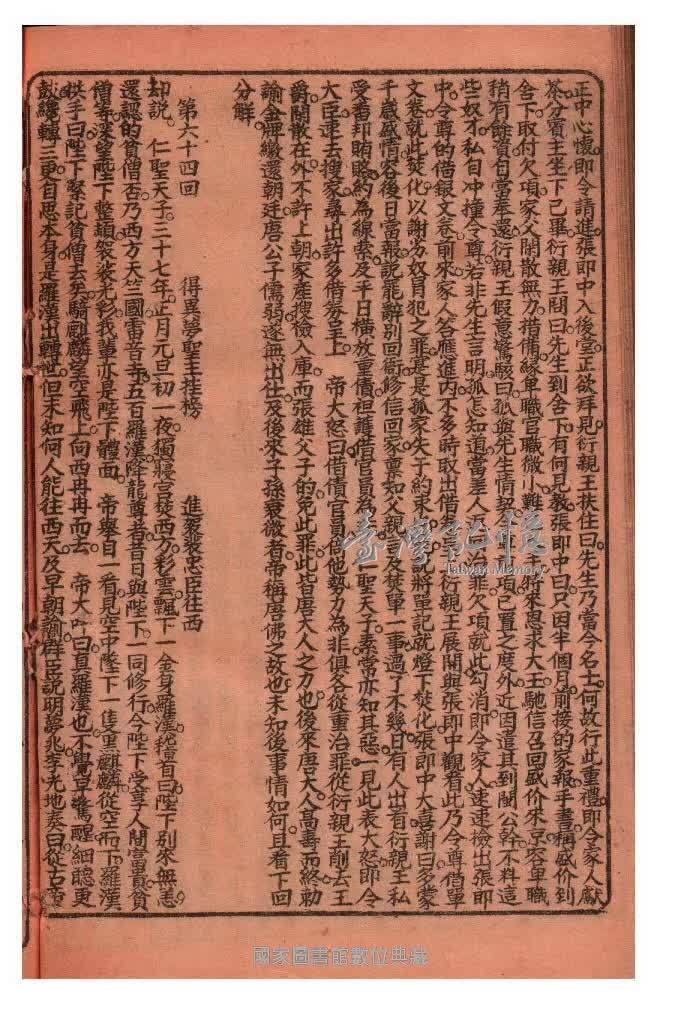 正中心懷即令請進張郎中入後堂正欲拜見衍親王扶住曰先生乃當今名士何故行此重禮即令家人獻
茶分賓主坐下已畢衍親王問曰先生到舍下有何見教張郎中曰只因半個月前接的家報手書稱盛价到
舍下取付欠項家父閒散無力措備緣卑職官職微小難 特來恩求大王馳信召回盛价來京容卑職
稍有餘資自當奉還衍親王假意驚駭曰孤與先生情契 項已置之度外近因遣其到閩公幹不料這
些奴才私自冲撞令尊若非先生言明孤怎知道當差人 罪欠項就此勾消即令家人速速檢出張郎
中令尊的借銀文卷前來家人答應進內不多時取出借 衍親王展開與張郎中觀看此乃令尊借單
文卷就此焚化以謝劣奴冒犯之罪是是孤家失于約束 說將單記就燈下焚化張郎中大喜謝曰多蒙
千歲盛情容後日當報說罷辭別回衙修信回家稟知父親 及焚單一事過了不幾日有人出首衍親王私
受書邦賄賂約為線索及平日橫放重債袒護借官員為 一聖天子素常亦知其惡一見此表大怒即令
大臣速去搜家尋出許多借券呈上 帝大怒曰借債官員 他勢力為非俱各從重治罪從衍親王削去王
爵閒散在外不許上朝家產搜檢入庫而張雄父子的免此罪此皆唐大人之力也後來唐大人高壽而終勅
諭金牌繳還朝廷唐公子儒弱遂無出仕及後來子孫衰微者帝稱唐佛之故也未知後事情如何且看下回
分解
第六十四回 得異夢聖主挂榜 進袈裟忠臣往西
却說 仁聖天子三十七年正月元旦初一夜獨寢宮焚西方彩雲飄下一金身羅漢稽首曰陛下別來無恙
還認的貧僧否乃西方天竺國雷音寺五百羅漢降龍尊者昔日與陛下一同修行今陛下受享人間富貴貧
僧寺深望陛下整頓袈裟光彩我輩亦是陛下體面 帝舉目一看見空中墜下一隻黑麒麟從空而下羅漢
拱手曰陛下緊記貧僧去矣騎麒麟望空飛上向西冉冉而去 帝大呼曰真羅漢也不覺早驚醒細聽更
鼓纔轉三更自思本身是羅漢出轉世但未知何人能往西天及早朝諭群臣說明夢兆李光地奏曰從古重
臺灣記憶
Taiwan Memory
國家圖書館數位典藏